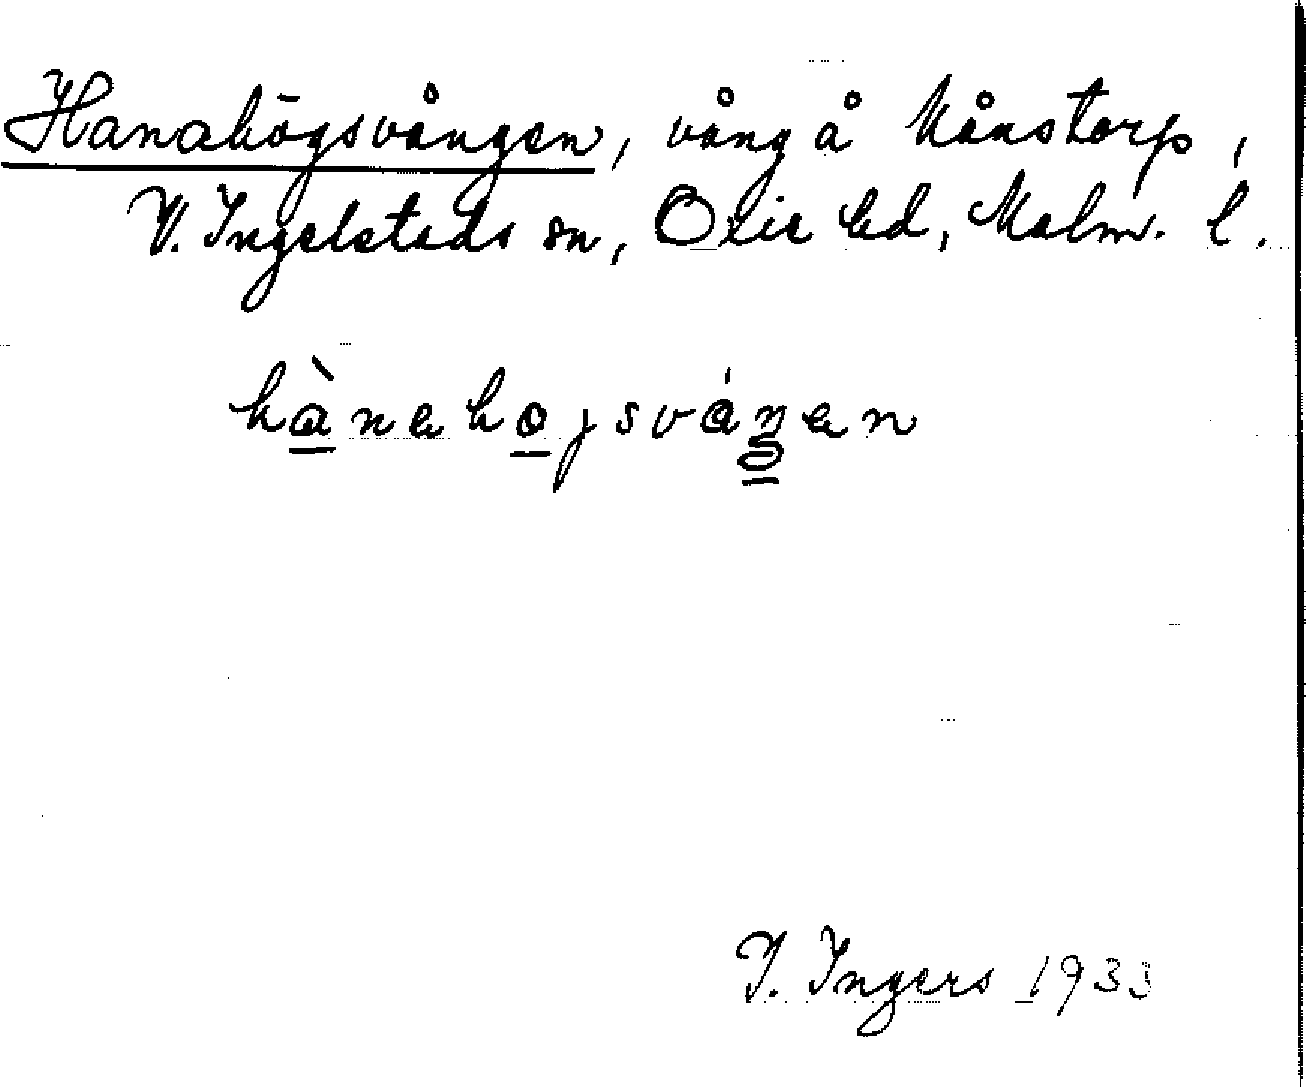 Hanahögsvången, vång å Månstorp,
V. Ingelstads sn, Oxie hd, Malm. l.
hànehojsváŋen
I. Ingers 1933